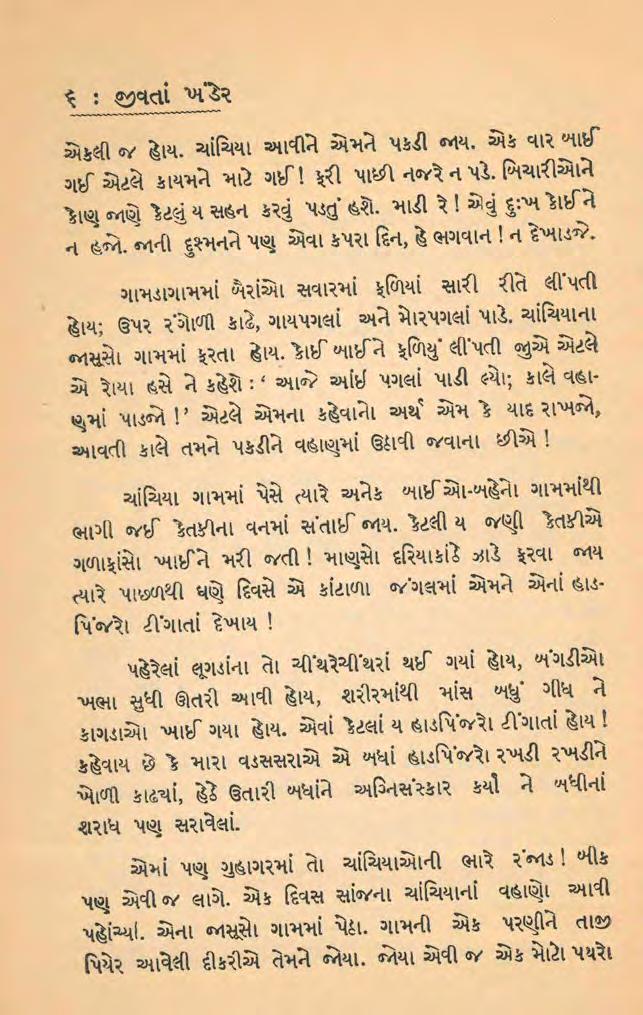 ૬ : જીવતાં ખંડેર
એકલી જ હોય. ચાંચિયા આવીને એમને પકડી જાય. એક વાર બાઈ
ગઈ એટલે કાયમને માટે ગઈ ! ફરી પાછી નજરે ન પડે. બિચારીઓને
કોણ જાણે કેટલું ય સહન કરવું પડતું હશે. માડી રે ! એવું દુઃખ કોઈને
ન હજો. જાની દુશ્મનને પણ એવા કપરા દિન, હે ભગવાન ! ન દેખાડજે.
ગામડાગામમાં બૈરાંઓ સવારમાં ફળિયાં સારી રીતે લીંપતી
હોય; ઉપર રંગોળી કાઢે, ગાયપગલાં અને મોરપગલાં પાડે. ચાંચિયાના
જાસૂસો ગામમાં ફરતા હોય. કોઈ બાઈને ફળિયું લીંપતી જુએ એટલે
એ રોયા હસે ને કહેશે : ‘ આજે આંઈ પગલાં પાડી લ્યો; કાલે વહા-
ણમાં પાડજો !’ એટલે એમના કહેવાનો અર્થ એમ કે યાદ રાખજો,
આવતી કાલે તમને પકડીને વહાણમાં ઉઠાવી જવાના છીએ !
ચાંચિયા ગામમાં પેસે ત્યારે અનેક બાઈઓ-બહેનો ગામમાંથી
ભાગી જઈ કેતકીના વનમાં સંતાઈ જાય. કેટલી ય જણી કેતકીએ
ગળાફાંસો ખાઈને મરી જતી ! માણસો દરિયાકાંઠે ઝાડે ફરવા જાય
ત્યારે પાછળથી ઘણે દિવસે એ કાંટાળા જંગલમાં એમને એનાં હાડ-
પિંજરો ટીંગાતાં દેખાય !
પહેરેલાં લૂગડાંના તો ચીંથરેચીંથરાં થઈ ગયાં હોય, બંગડીઓ
ખભા સુધી ઊતરી આવી હોય, શરીરમાંથી માંસ બધું ગીધ ને
કાગડાઓ ખાઈ ગયા હોય. એવાં કેટલાં ય હાડપિંજરો ટીંગાતાં હોય !
કહેવાય છે કે મારા વડસસરાએ એ બધાં હાડપિંજરો રખડી રખડીને
ખોળી કાઢયાં, હેઠે ઉતારી બધાંને અગ્નિસંસ્કાર કર્યો ને બધીનાં
શરાધ પણ સરાવેલાં.
એમાં પણ ગુહાગરમાં તો ચાંચિયાઓની ભારે રંજાડ ! બીક
પણ એવી જ લાગે. એક દિવસ સાંજના ચાંચિયાનાં વહાણો આવી
પહોંચ્યાં. એના જાસૂસો ગામમાં પેઠા. ગામની એક પરણીને તાજી
પિયેર આવેલી દીકરીએ તેમને જોયા. જોયા એવી જ એક મોટો પથરો